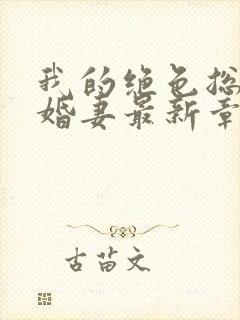 我的绝色总
婚妻最新章
古苗文